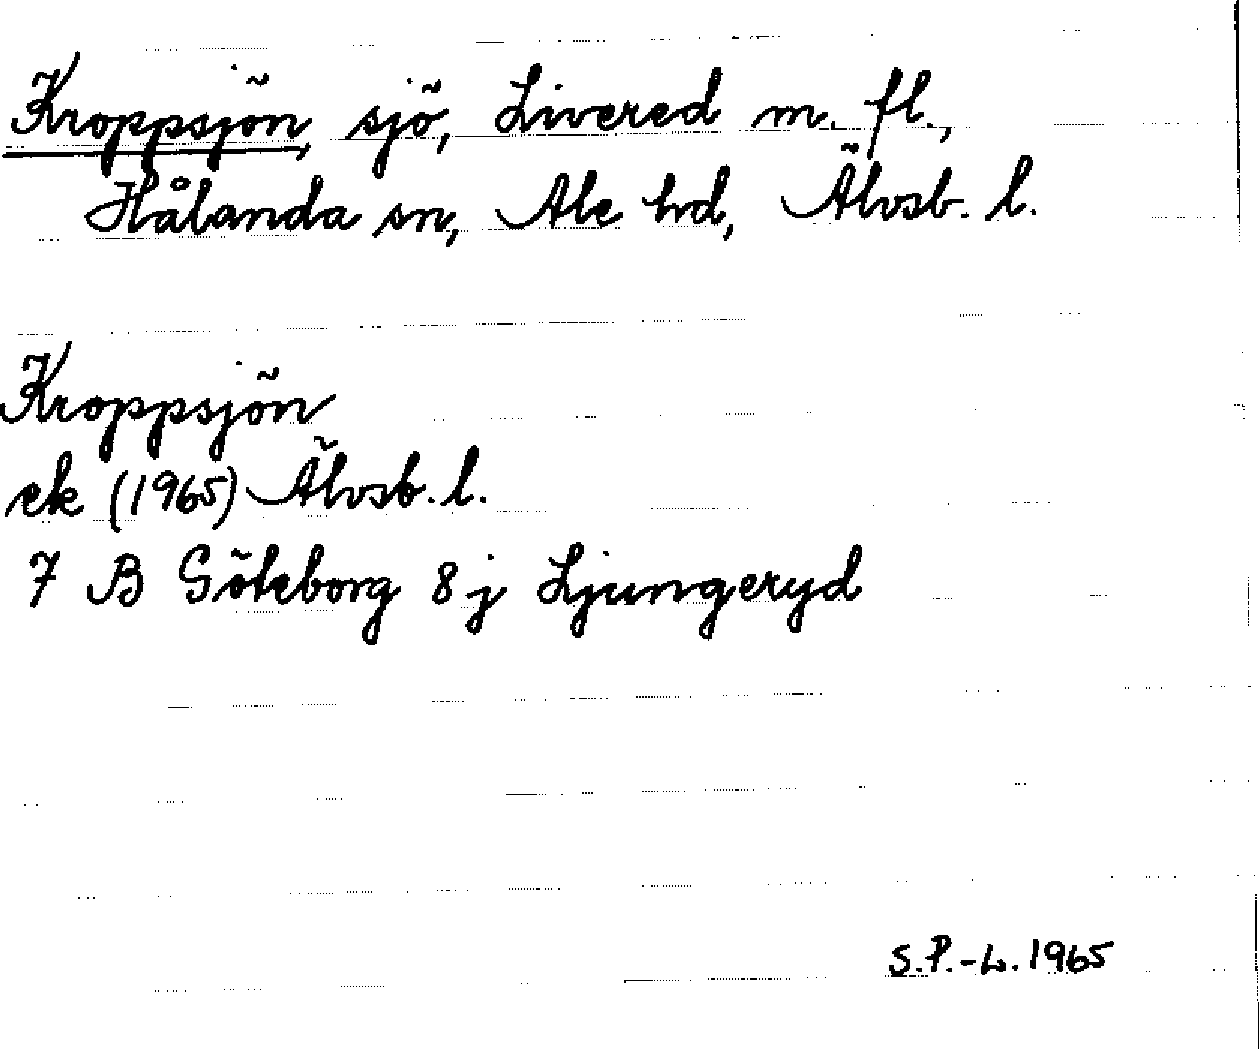 Kroppsjön, sjö, Livered m. fl.,
Hålanda sn, Ale hd, Älvsb. l.
Kroppsjön
ek (1965) Älvsb. l.
7 B Göteborg 8 j Ljungeryd
S.P.-L. 1965